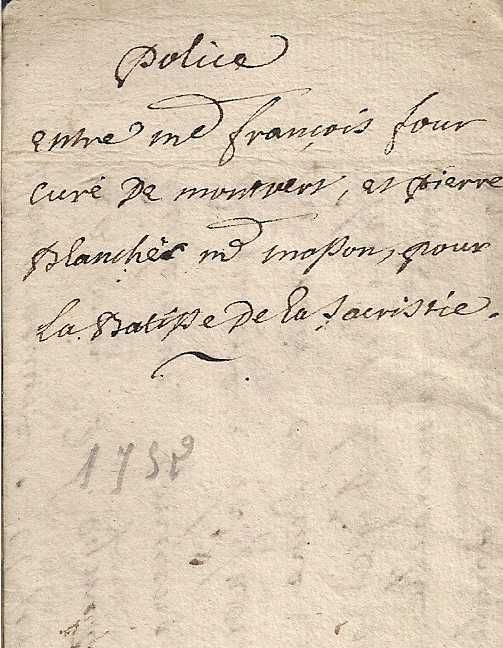 Police
entre me françois four
curé De montvert, et pierre
Planchés me masson, pour
La Batisse De La Sacristie.
1738